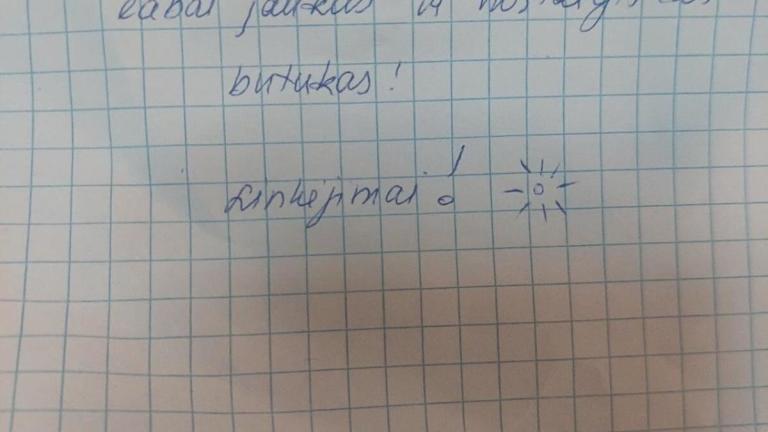 labai jaukus ir nostalgiškas
butukas!
Linkėjimai!